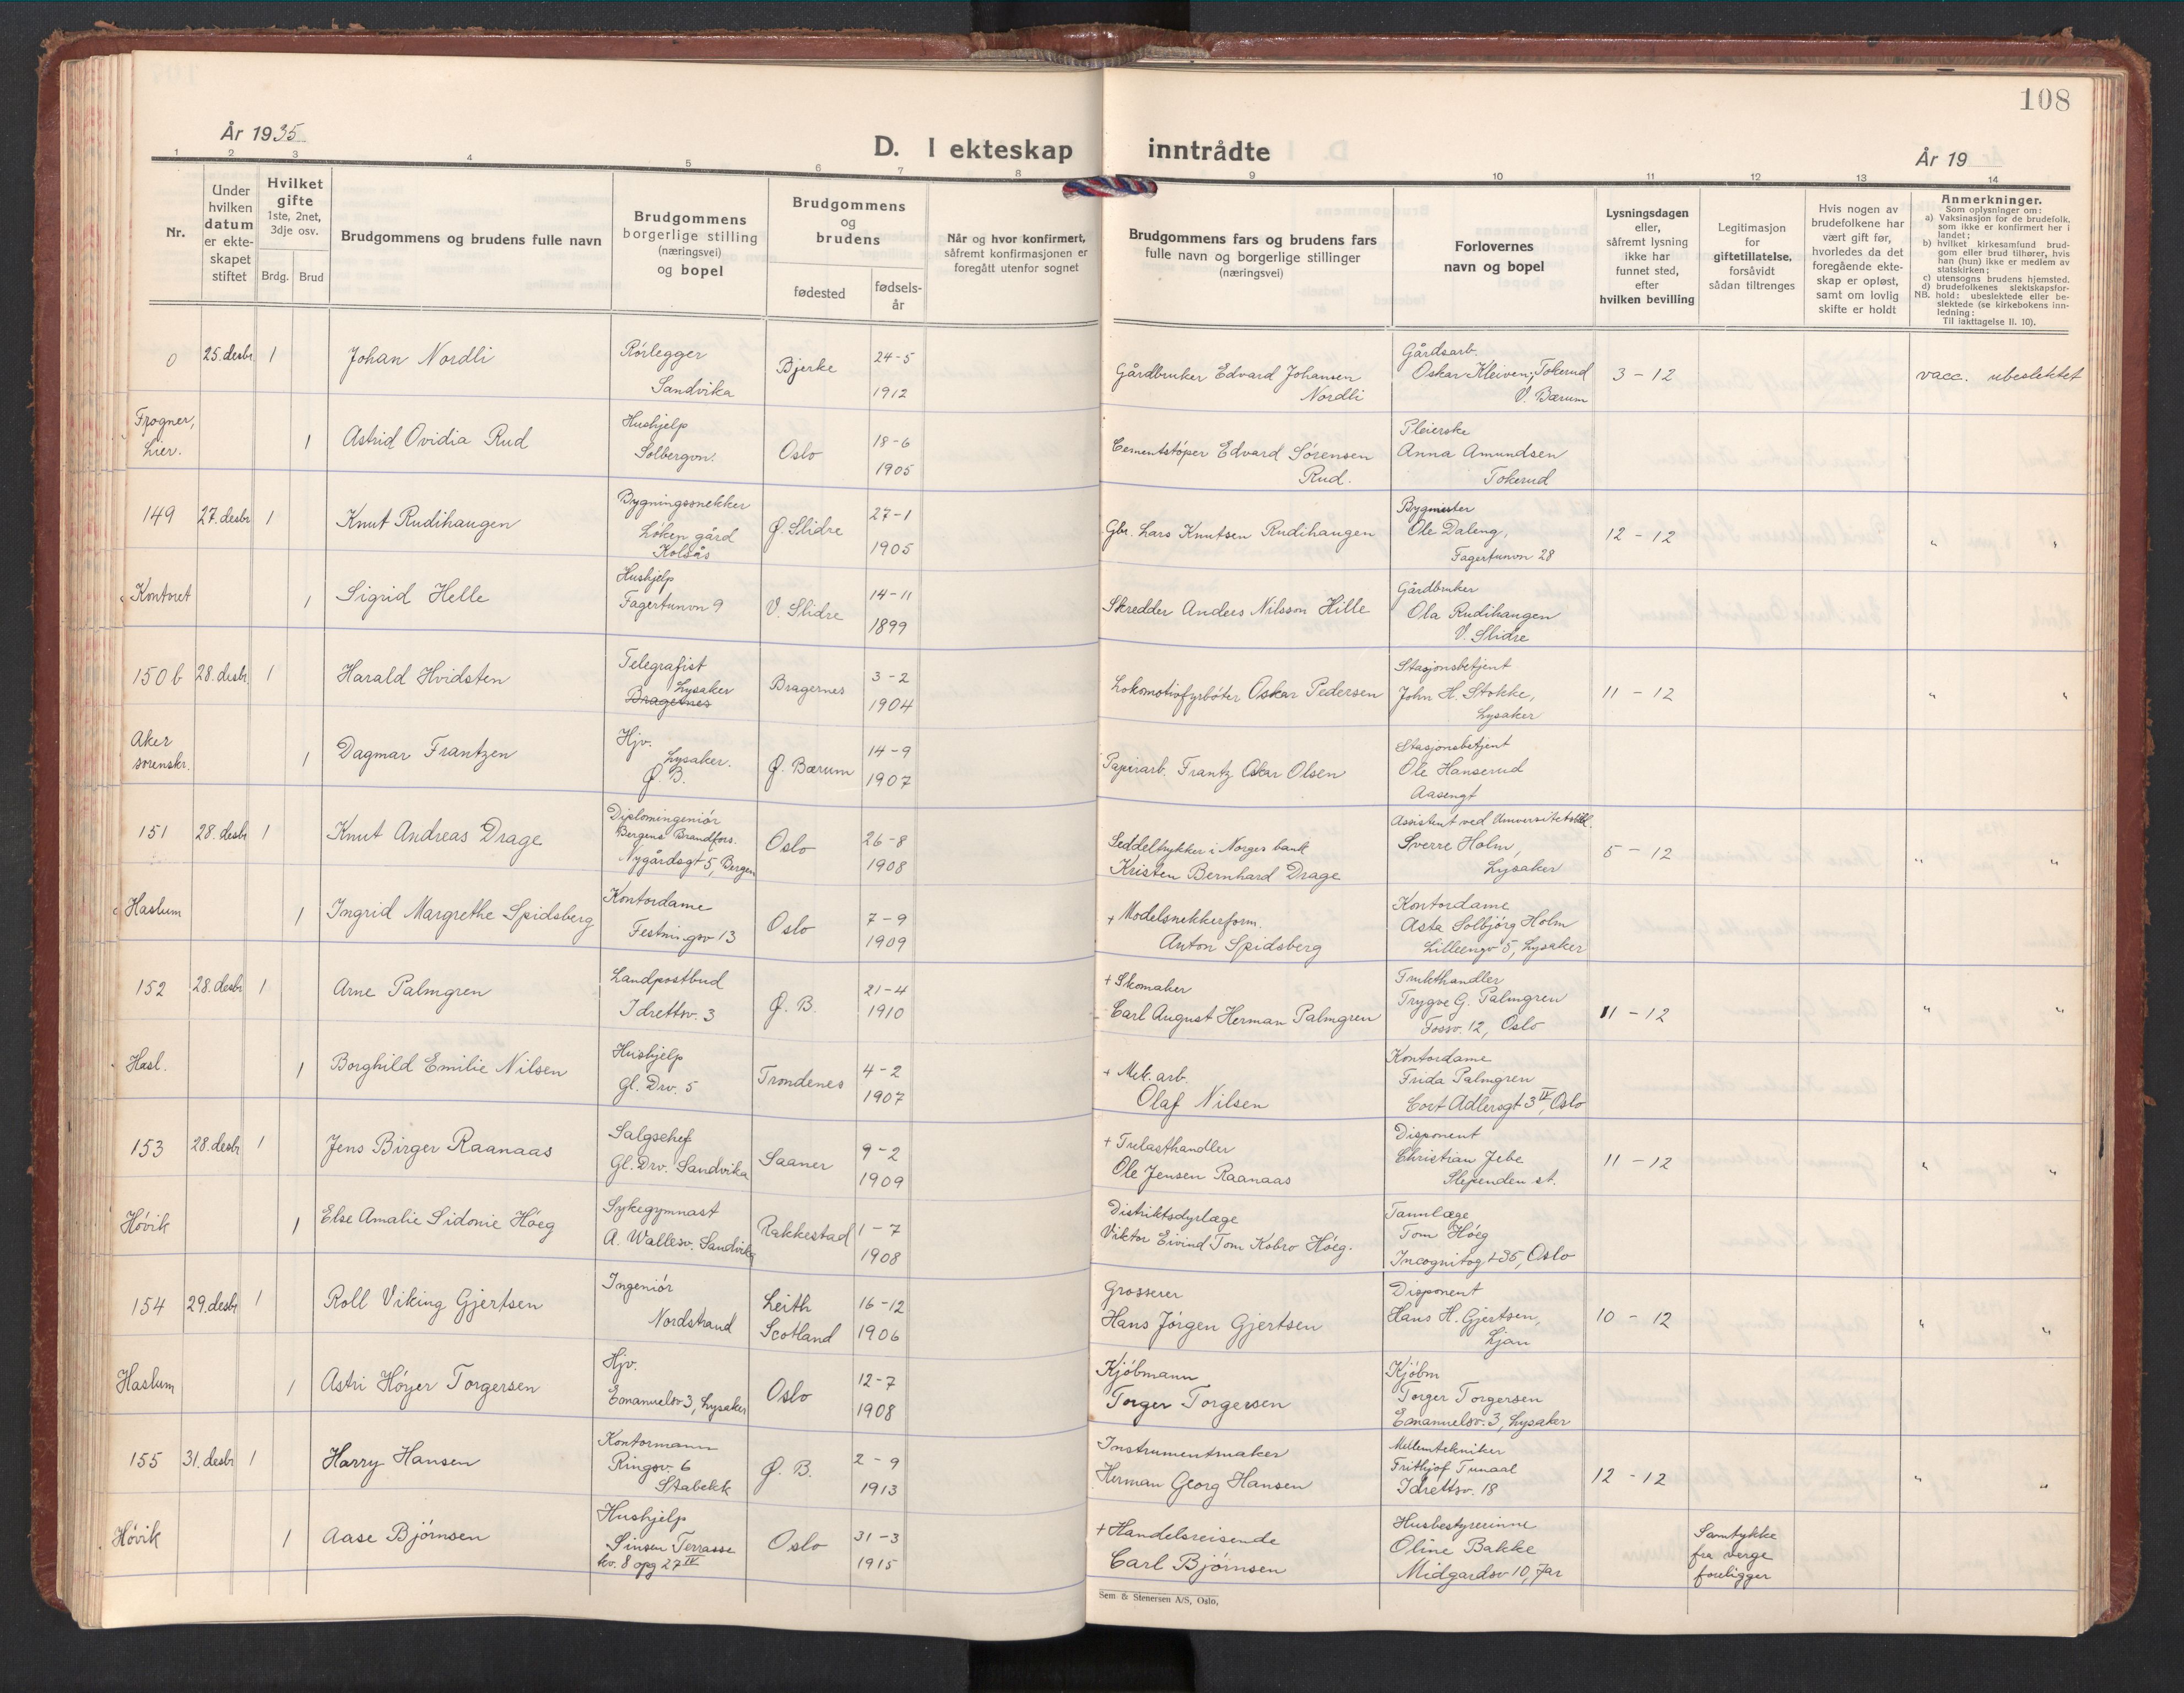 108
År 1935
D. I ekteskap inntrådte
År 19
1 2 3 4 5 6 7 8 9 10 11 12 13 14
Nr.
Under
hvilken
datum
er ekte-
skapet
stiftet
Hvilket
gifte
1ste, 2net,
3dje osv.
Brdg. Brud
Brudgommens og brudens fulle navn
Brudgommens
borgerlige stilling
(næringsvei)
og bopel
Brudgommens
og
brudens
fødested
fødsels-
år
Når og hvor konfirmert,
såfremt konfirmasjonen er
foregått utenfor sognet
Brudgommens fars og brudens fars
fulle navn og borgerlige stillinger
(næringsvei)
Forlovernes
navn og bopel
Lysningsdagen
eller,
såfremt lysning
ikke har
funnet sted,
efter
hvilken bevilling
Legitimasjon
for
giftetillatelse,
forsåvidt
sådan tiltrenges
Hvis nogen av
brudefolkene har
vært gift før,
hvorledes da det
foregående ekte-
skap er opløst,
samt om lovlig
skifte er holdt
Anmerkninger.
Som oplysninger om:
a) Vaksinasjon for de brudefolk,
som ikke er konfirmert her i
landet;
b) hvilket kirkesamfund brud-
gom eller brud tilhører, hvis
han (hun) ikke er medlem av
statskirken;
c) utensogns brudens hjemsted.
d) brudefolkenes slektskapsfor-
NB. hold: ubeslektede eller be-
slektede (se kirkebokens inn-
ledning:
Til iakttagelse II. 10).
0 25. desbr 1 Johan Nordli
Rörlegger
Sandvika
Bjerke
24-5
1912
Gårdbruker Edvard Johansen
Nordli
Gårdsarb.
Oskar Kleiven, Tokerud
V. Bærum
3-12
vacc. ubeslektet
Frogner,
Lier.
1 Astrid Ovidia Rud
Hushjelp
Solbergvn.
Oslo
18-6
1905
Cementstöper Edvard Sörensen
Rud.
Pleierske
Anna Amundsen
Tokerud
149 27. desbr 1 Knut Rudihaugen
Bygningssnekker
Löken gård
Kolsås
Ø. Slidre
27-1
1905
Gbr. Lars Knutsen Rudihaugen
Bygmester
Ole Daleng,
Fagertunvn 28
12-12
" "
Kontoret 1 Sigrid Helle
Hushjelp
Fagertunvn 9
V. Slidre
14-11
1899
Skredder Anders Nilsson Hille
Gårdbruker
Ola Rudihaugen
V. Slidre
150 b 28. desbr. 1 Harald Hvidsten
Telegrafist
Lysaker
Bragernes
Bragernes
3-2
1904
Lokomotivfyrböter Oskar Pedersen
Stasjonsbetjent
John H. Stokke,
Lysaker
11-12
" "
Aker
sorenskr.
1 Dagmar Frantzen
Hjv.
Lysaker.
Ø. B.
Ø. Bærum
14-9
1907
Papirarb. Frantz Oskar Olsen
Stasjonsbetjent
Ole Hanserud
Aasengt
151 28. desbr 1 Knut Andreas Drage
Diplomingeniör
Bergens Brandfors.
Nygårdsgt 5, Bergen
Oslo
26-8
1908
Seddeltrykker i Norges bank
Kristen Bernhard Drage
Assistent ved Universitetsbibl.
Sverre Holm,
Lysaker
5-12
" "
Haslum 1 Ingrid Margrethe Spidsberg
Kontordame
Festningsv 13
Oslo
7-9
1909
+ Modelsnekkerform.
Anton Spidsberg
Kontordame
Asta Solbjörg Holm
Lilleengv 5, Lysaker
152 28. desbr 1 Arne Palmgren
Landpostbud
Idrettsv. 3
Ø. B.
21-4
1910
+ Skomaker
Carl August Herman Palmgren
Frukthandler
Trygve G. Palmgren
Fossv. 12, Oslo
11-12
" "
Hasl. 1 Borghild Emilie Nilsen
Hushjelp
Gl. Drv. 5
Trondenes
4-2
1907
+ Mek. arb.
Olaf Nilsen
Kontordame
Frida Palmgren
Cort Adlersgt 3 IV, Oslo
153 28. desbr 1 Jens Birger Raanaas
Salgschef
Gl. Drv. Sandvika
Saaner
9-2
1909
+ Trelasthandler
Ole Jensen Raanaas
Disponent
Christian Jebe
Slependen st.
11-12
" "
Hövik 1 Else Amalie Sidonie Höeg
Sykegymnast
A. Wallesv. Sandvika
Rakkestad
1-7
1908
Distriktsdyrlæge
Viktor Eivind Tom Kobro Höeg.
Tannlæge
Tom Höeg
Incognitogt 35, Oslo
154 29. desbr 1 Roll Viking Gjertsen
Ingeniör
Nordstrand
Leith
Scotland
16-12
1906
Grosserer
Hans Jörgen Gjertsen
Disponent
Hans H. Gjertsen,
Ljan
10-12
" "
Haslum 1 Astri Höyer Torgersen
Hjv.
Emanuelsv 3, Lysaker
Oslo
12-7
1908
Kjöbmann
Torger Torgersen
Kjöbm
Torger Torgersen
Emanuelsv. 3, Lysaker
155 31. desbr 1 Harry Hansen
Kontormann
Ringsv. 6
Stabekk
Ø. B.
2-9
1913
Instrumentmaker
Herman Georg Hansen
Mellemtekniker
Frithjof Tunaal
Idrettsv. 18
12-12
" "
Hövik 1 Aase Bjørnsen
Hushjelp
Sinsen Terrasse
kv. 8 opg 27 IV
Oslo
31-3
1915
+ Handelsreisende
Carl Bjørnsen
Husbestyrerinne
Oline Bakke
Midgardsv 10, Jar
Samtykke
fra verge
foreligger
Sem & Stenersen A/S, Oslo.